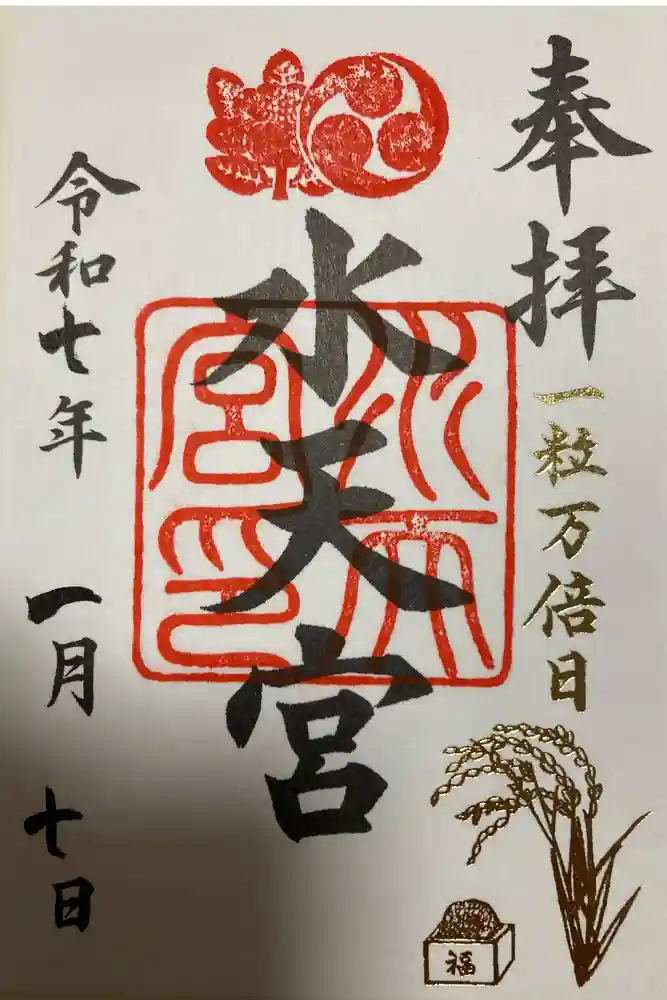 奉拝
一粒万倍日
福
水天宮
水天宮印
令和七年
一月
七日